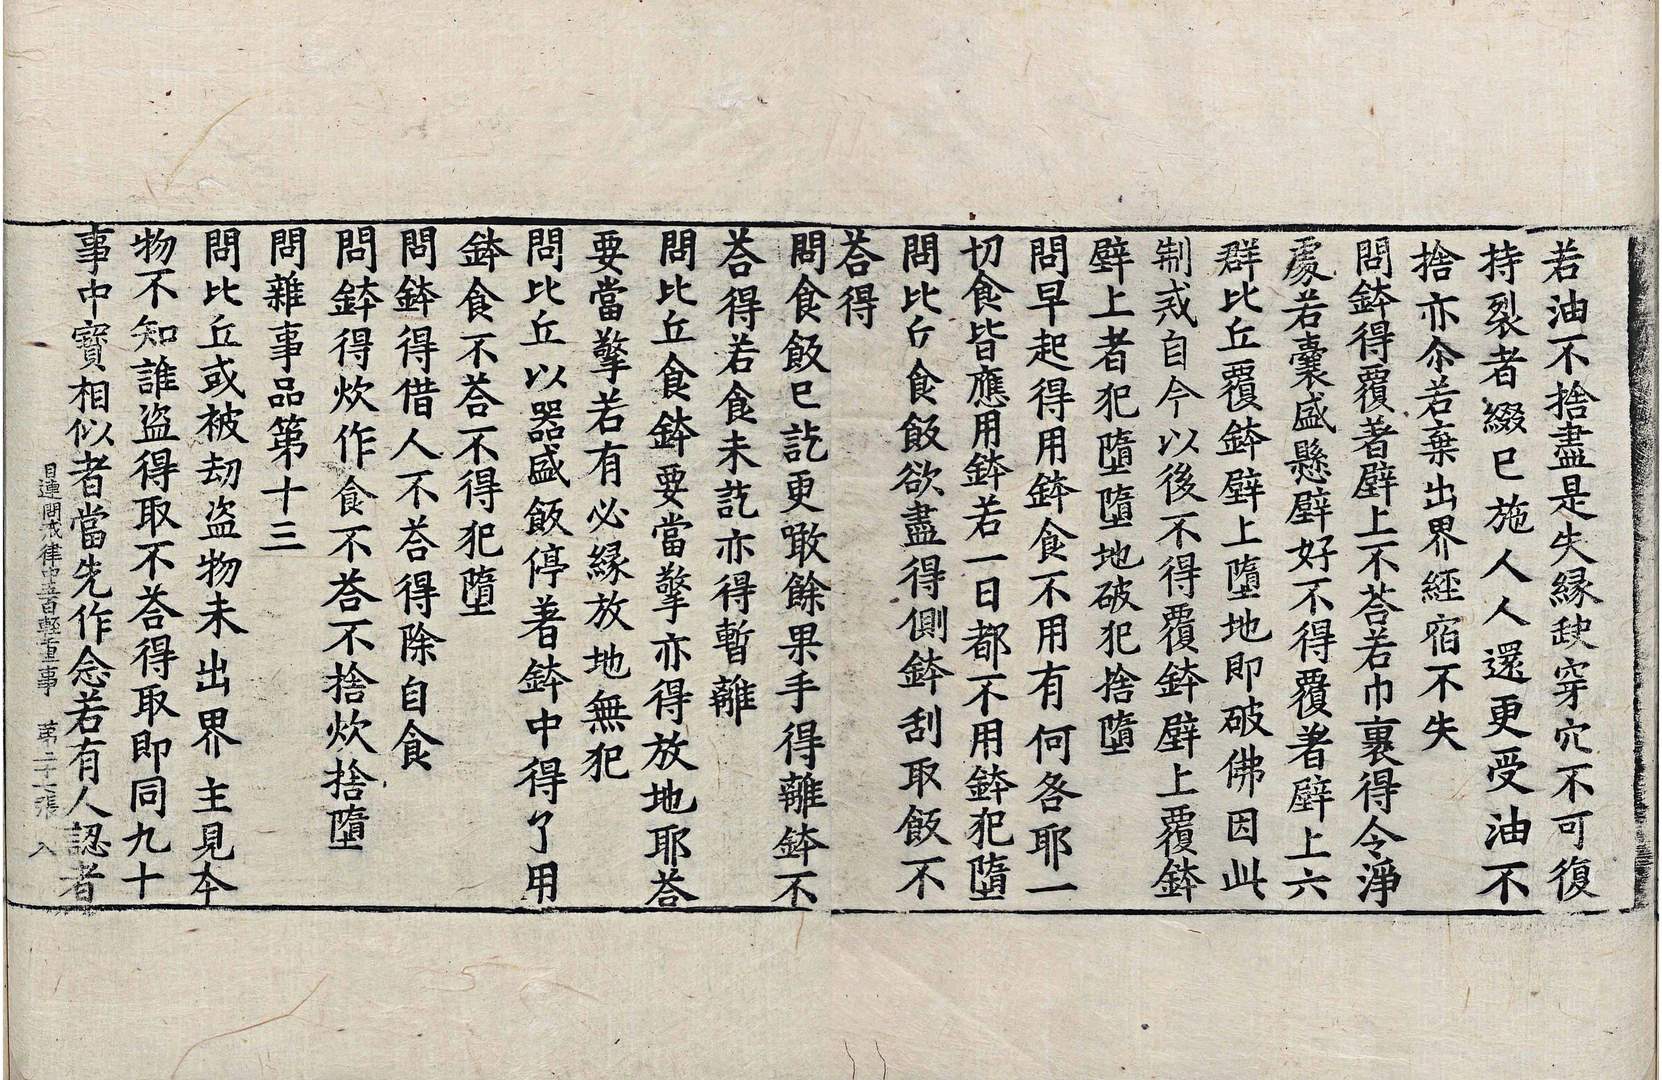 若油不捨盡是失縁缺穿穴不可復
持裂者綴已施人人還更受油不
捨亦尒若棄出界經宿不失
問鉢得覆著壁上不荅若巾裹得令淨
處若囊盛懸壁好不得覆著壁上六
群比丘覆鉢壁上墮地即破佛因此
制戒自今以後不得覆鉢壁上覆鉢
壁上者犯墮墮地破犯捨墮
問早起得用鉢食不用有何咎耶一
切食皆應用鉢若一日都不用鉢犯墮
問比丘食飯欲盡得側鉢刮取飯不
荅得
問食飯已訖更噉餘果手得離鉢不
荅得若食未訖亦得暫離
問比丘食鉢要當擎亦得放地耶荅
要當擎若有必縁放地無犯
問比丘以器盛飯停著鉢中得了用
鉢食不荅不得犯墮
問鉢得借人不荅得除自食
問鉢得炊作食不荅不捨炊捨墮
問雜事品第十三
問比丘或被劫盗物未出界主見本
物不知誰盗得取不荅得取即同九十
事中寶相似者當先作念若有人認者
目連問戒律中五百輕重事　第二十七張　入